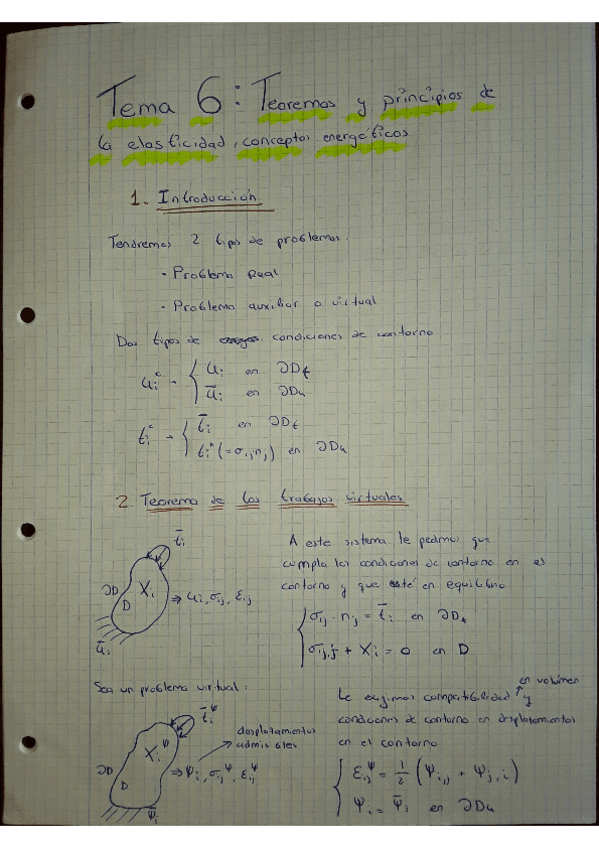 Tema 6: Teoremas y principios de
la elasticidad, conceptos energéticos
1. Introducción
Tendremos 2 tipos de problemas.
- Problema Real
- Problema auxiliar o virtual
Dos tipos de condiciones de contorno
uᵢᶜ → { uᵢ en ∂Dt
ūᵢ en ∂Du
tᵢᶜ → { t̄ᵢ en ∂Dt
tᵢⁿ (= σᵢⱼ nⱼ) en ∂Du
2 Teorema de los trabajos virtuales
t̄ᵢ
∂D
D
Xᵢ
⇒ uᵢ, σᵢⱼ, εᵢⱼ
ūᵢ
A este sistema le pedimos que
cumpla las condiciones de contorno en el
contorno y que esté en equilibrio
{ σᵢⱼ · nⱼ = t̄ᵢ en ∂Dt
σᵢⱼ,ⱼ + Xᵢ = 0 en D
Sea un problema virtual:
t̄ᵢᵠ
desplazamientos
admisibles
∂D
D
Xᵢᵠ
⇒ Ψᵢ, σᵢⱼᵠ, εᵢⱼᵠ
Ψ̄ᵢ
en volúmen
Le exigimos compatibilidad y
condiciones de contorno en desplazamientos
en el contorno
{ εᵢⱼᵠ = 1/2 (Ψᵢ,ⱼ + Ψⱼ,ᵢ)
Ψᵢ = Ψ̄ᵢ en ∂Du